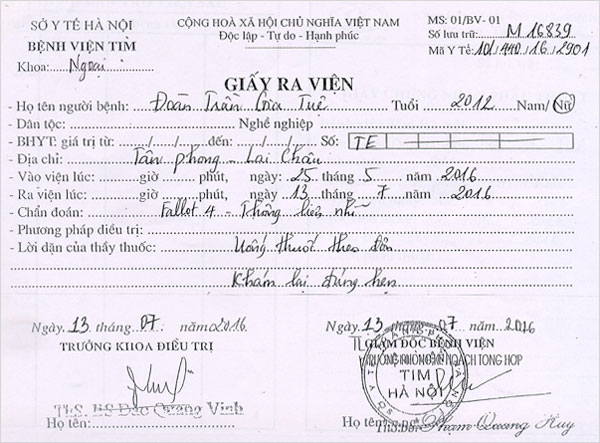 SỞ Y TẾ HÀ NỘI
BỆNH VIỆN TIM
Khoa: Ngoại
CỘNG HOÀ XÃ HỘI CHỦ NGHĨA VIỆT NAM
Độc lập - Tự do - Hạnh phúc
MS: 01/BV- 01
Số lưu trữ: M 16839
Mã Y Tế: 101/440/16/2901
GIẤY RA VIỆN
- Họ tên người bệnh: Đoàn Trần Gia Tuệ Tuổi 2012 Nam/ Nữ
- Dân tộc: Nghề nghiệp
- BHYT: giá trị từ: ...../...../..... đến: ...../...../..... Số: TE
- Địa chỉ: Tân phong - Lai Châu
- Vào viện lúc: giờ phút, ngày: 25 tháng 5 năm 2016
- Ra viện lúc: giờ phút, ngày 13 tháng 7 năm 2016
- Chẩn đoán: Fallot 4 - Thông liên nhĩ
- Phương pháp điều trị:
- Lời dặn của thầy thuốc: Uống thuốc theo đơn
Khám lại đúng hẹn
Ngày 13 tháng 07 năm 2016
TRƯỞNG KHOA ĐIỀU TRỊ
ThS. BS Đắc Quang Vinh
Họ tên:
Ngày 13 tháng 07 năm 2016
TL GIÁM ĐỐC BỆNH VIỆN
TRƯỞNG PHÒNG KẾ HOẠCH TỔNG HỢP
TIM
HÀ NỘI
Họ tên: ThS.BS. Phạm Quang Huy